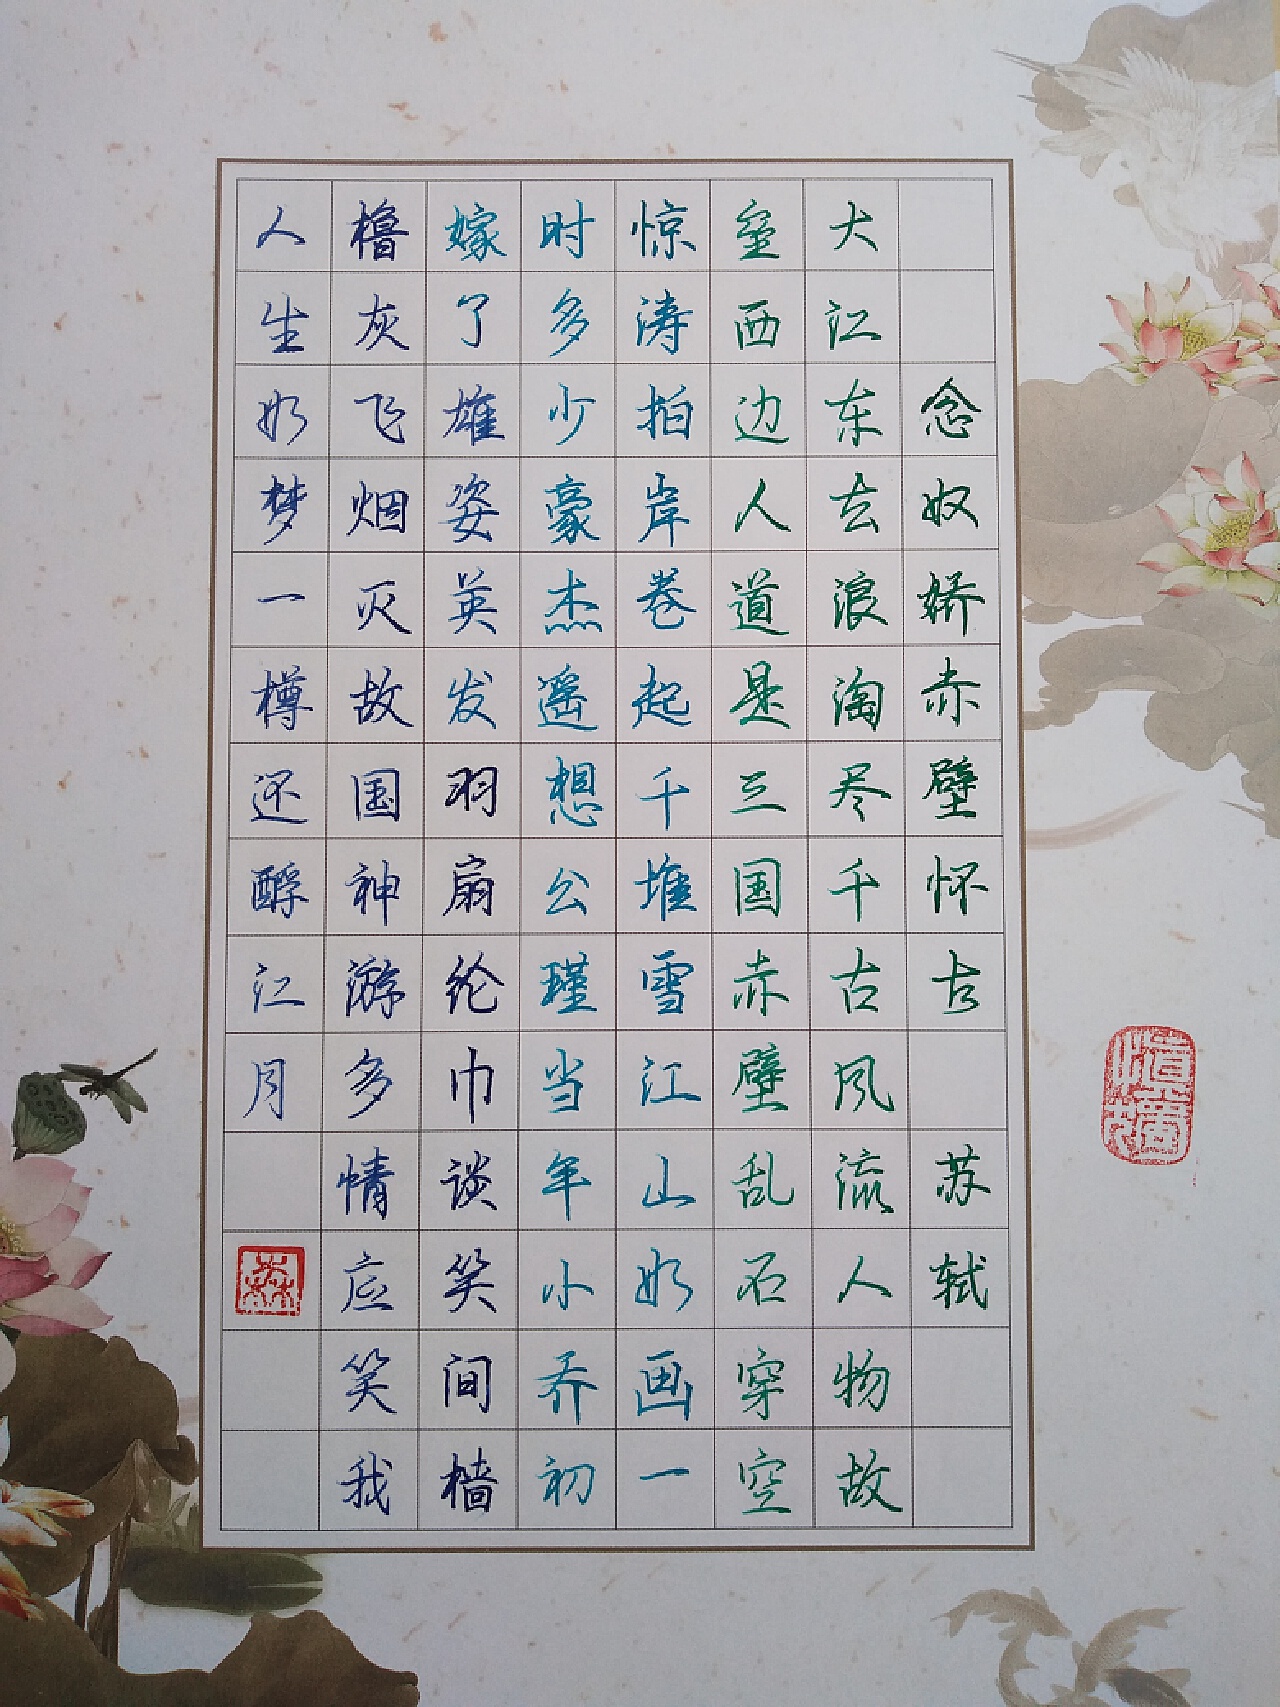 念奴娇赤壁怀古 苏轼
大江东去浪淘尽千古风流人物故
垒西边人道是三国赤壁乱石穿空
惊涛拍岸卷起千堆雪江山如画一
时多少豪杰遥想公瑾当年小乔初
嫁了雄姿英发羽扇纶巾谈笑间樯
橹灰飞烟灭故国神游多情应笑我
人生如梦一樽还酹江月